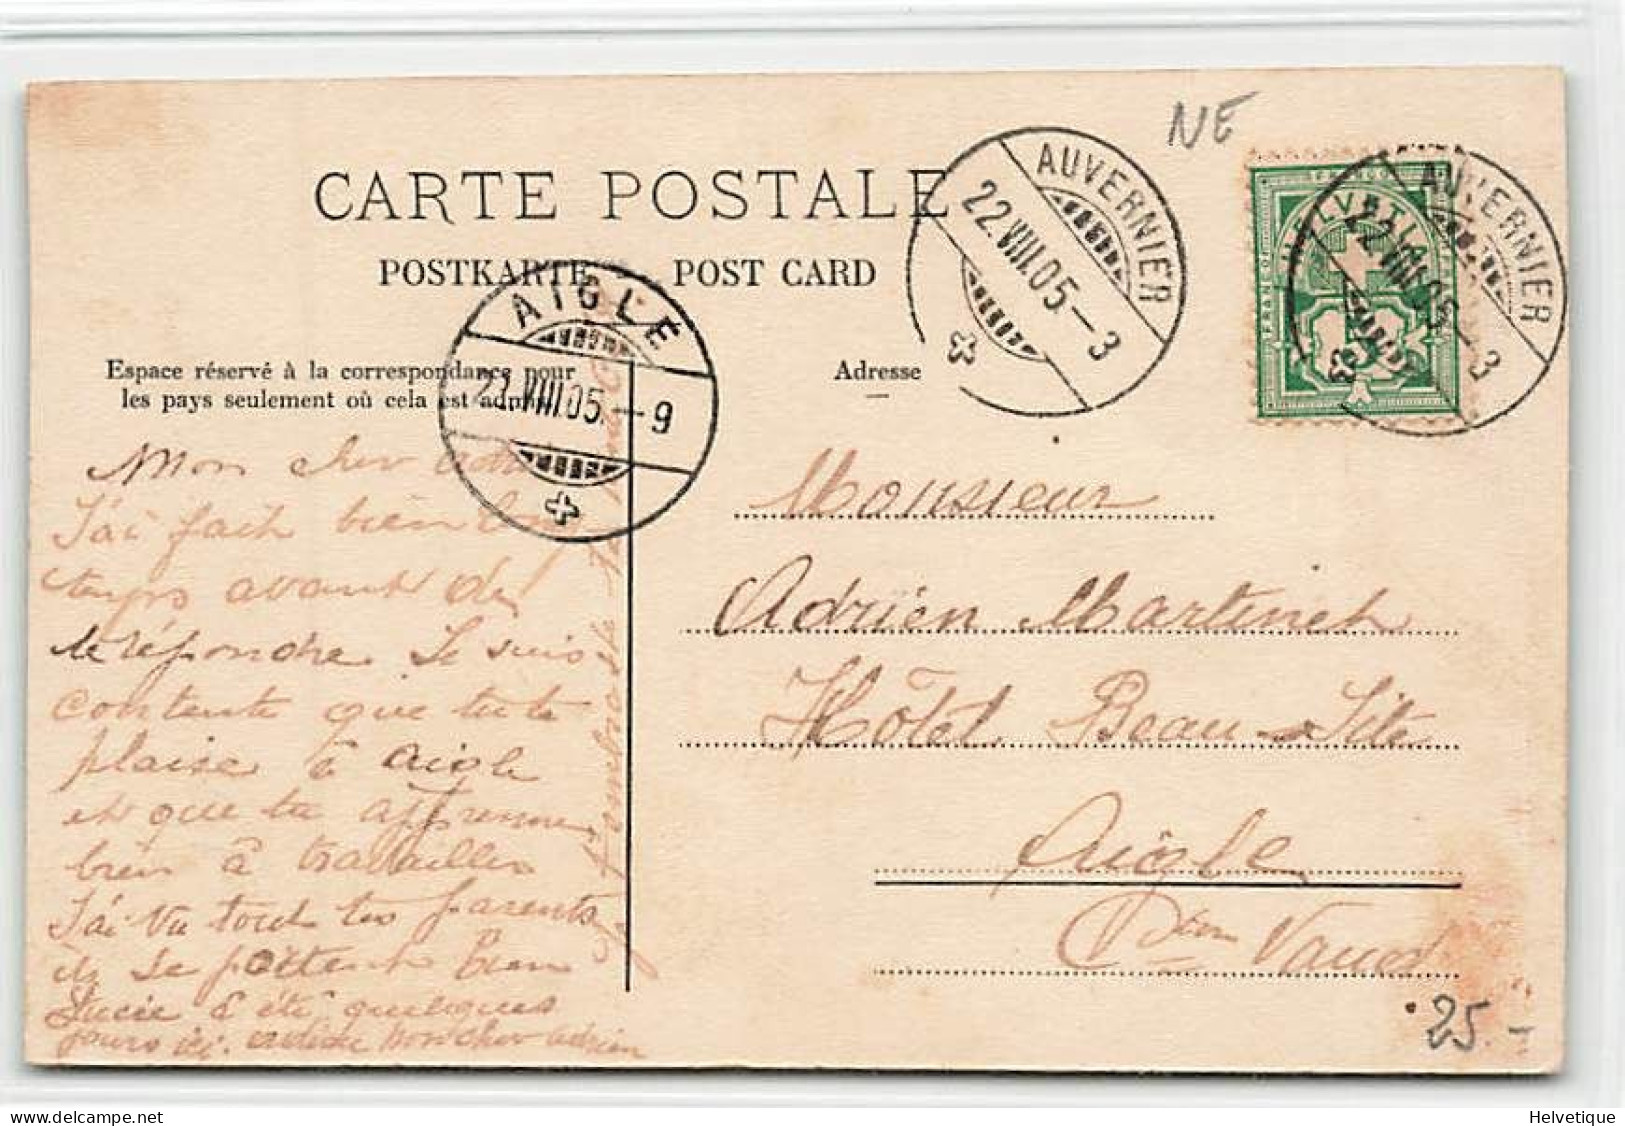 NE
CARTE POSTALE
POSTKARTE POST CARD
AUVERNIER
22.VIII.05.–3
AUVERNIER
22.VIII.05–3
HELVETIA
FRANCO
AIGLE
22.VIII.05.–9
Espace réservé à la correspondance pour
les pays seulement où cela est admis.
Adresse
Mon cher
J'ai fait bien long
temps avant de
te répondre. Je suis
contente que tu te
plaise à Aigle
et que tu apprenne
bien à travailler
J'ai vu tout tes parents
ils se portent bien
Lucie a été quelques
jours ici. cher adrien
Monsieur
Adrien Martinet
Hôtel Beau-Site
Aigle
Cton Vaud
25.-
Helvetique